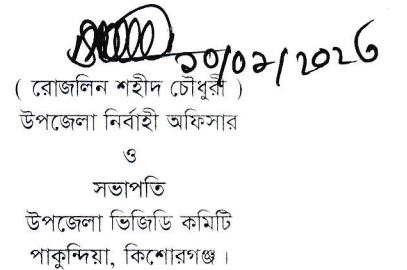 ১০/০২/২০২৩
( রোজলিন শহীদ চৌধুরী )
উপজেলা নির্বাহী অফিসার
ও
সভাপতি
উপজেলা ভিজিডি কমিটি
পাকুন্দিয়া, কিশোরগঞ্জ ।